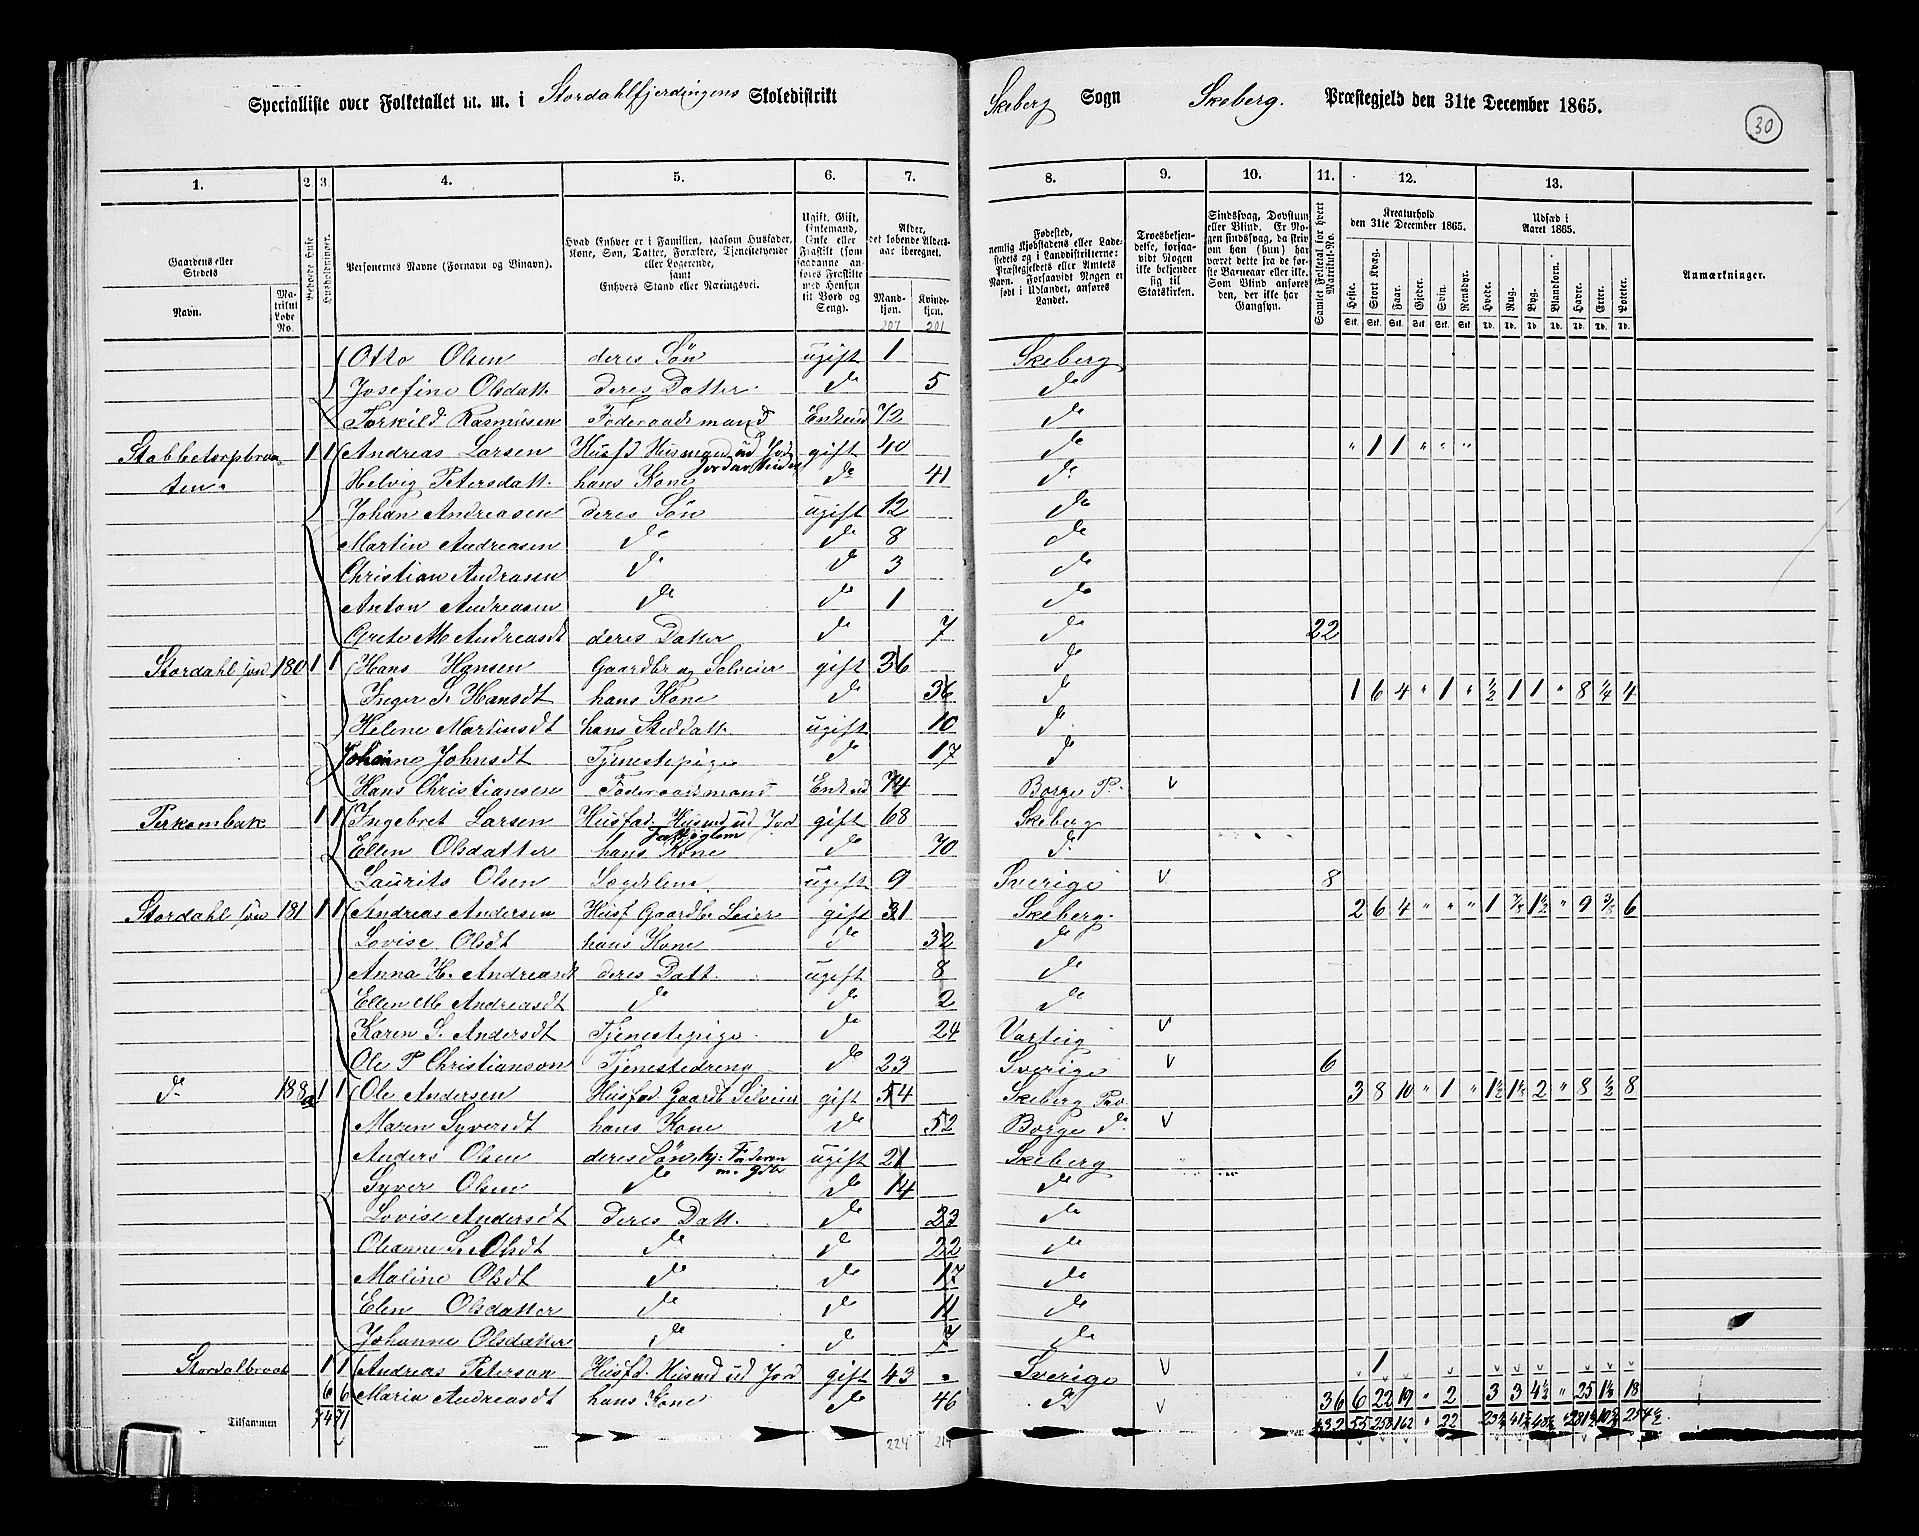 Specialliste over Folketallet m. m. i Stordahlfjerdingens Skoledistrikt Skeberg Sogn Skeberg. Præstegjeld den 31te December 1865.
30
1. 2 3 4. 5. 6. 7. 8. 9. 10. 11. 12. 13.
Gaardens eller Stedets
Navn.
Matrikul Løbe No.
Beboede Huse.
Husholdninger.
Personernes Navne (Fornavn og Tilnavn).
Hvad Enhver er i Familien, saasom Husfader, Kone, Søn, Datter, Forældre, Tjenestetyende eller Logerende, samt Enhvers Stand eller Næringsvei.
Ugift, Gift, Enkemand, Enke eller Fraskilt (som saadanne anføres Fraskilte med Hensyn til Bord og Seng).
Alder, det løbende Aldersaar iberegnet.
Mandkjøn. Kvindekjøn.
207 201
Fødested, nemlig Kjøbstadens eller Ladestedets og i Landdistrikterne: Præstegjeldets eller Amtets Navn. Forsaavidt Nogen er født i Udlandet, anføres Landet.
Troesbekjendelse, forsaavidt Nogen ikke bekjender sig til Statskirken.
Sindssvag, Døvstum eller Blind. Er Nogen sindssvag, da skriv om han (hun) har været dette fra de første Barneaar eller ikke. Som Blind anføres den, der ikke har Gangsyn.
Samlet Folketal for hvert Matrikul-No.
Kreaturhold den 31te December 1865.
Udsæd i Aaret 1865.
Anmærkninger.
Heste. Stort Kvæg. Faar. Gjeder. Svin. Rensdyr. Hvede. Rug. Byg. Blandkorn. Havre. Erter. Poteter.
Stk. Stk. Stk. Stk. Stk. Stk. Td. Td. Td. Td. Td. Td. Td.
Otto Olsen deres Søn ugift 1 Skeberg
Josefine Olsdatt. deres Datter do 5 do
Torkild Rasmusen Føderaadsmand Enkem 72 do
Stabbetorpbraaten. 1 1 Andreas Larsen Husfd Husmand ud Jord Jordarbeider gift 40 do " 1 1 " " "
Helvig Petersdatt. hans Kone do 41 do
Johan Andreasen deres Søn ugift 12 do
Martin Andreasen do do 8 do
Christian Andrasen do do 3 do
Anton Andreasen do do 1 do
Grete M Andreasdt deres Datter do 7 do 22
Stordahl søn 180 1 1 Hans Hansen Gaardbr og Selveier gift 36 do
Inger S. Hansdt hans Kone do 36 do 1 6 4 " 1 " 1/2 1 1 " 8 1/4 4
Helene Martinsdt hans Steddatt. ugift 10 do
Johanne Johnsdt Tjenestepige do 17 do
Hans Christiansen Føderaadsmand Enkem 74 Borge P. v
1 1 Ingebret Larsen Husfad. Husmd ud Jord gift 68 Skeberg
Ellen Olsdatter hans Kone do 70 do
Laurits Olsen ugift 9 Sverige v 8
Stordahl søn 181 1 1 Andreas Andersen Husf Gaardbr Leier gift 31 Skeberg. 2 6 4 " " " 1 1 1/2 " 9 6
Lovise Olsdt hans Kone do 32 do
Anna H. Andreasdt deres Datt. ugift 8 do
Ellen M Andreasdt do do 2 do
Karen S. Andersdt Tjenestepige do 24 Varteig v
Ole P Christianson Tjenestedreng do 23 Sverige v 6
do 188a 1 1 Ole Andersen Husfad. Gaardb. Selveier gift 54 Skeberg 3 8 10 " 1 " 1 1/2 2 " 8 1/2 8
Maren Syversdt hans Kone do 52 Borge do v
Anders Olsen deres Søn, hj: Faderen m. Gdbr ugift 21 Skeberg
Syver Olsen do do 14 do
Lovise Andersdt deres Datt. do 23 do
Oleanne S. Olsdt do do 22 do
Maline Olsdt do do 17 do
Elen Olsdatter do do 11 do
Johanne Olsdatter do do 7 do
Stordalbraat 1 1 Andreas Peterson Husfd. Husmd ud Jord gift 43 Sverige v 1
6 6 Maria Andreasdt hans Kone do 46 do v 36 6 22 19 " 2 3 3 4 1/2 " 25 18
Tilsammen 74 71
224